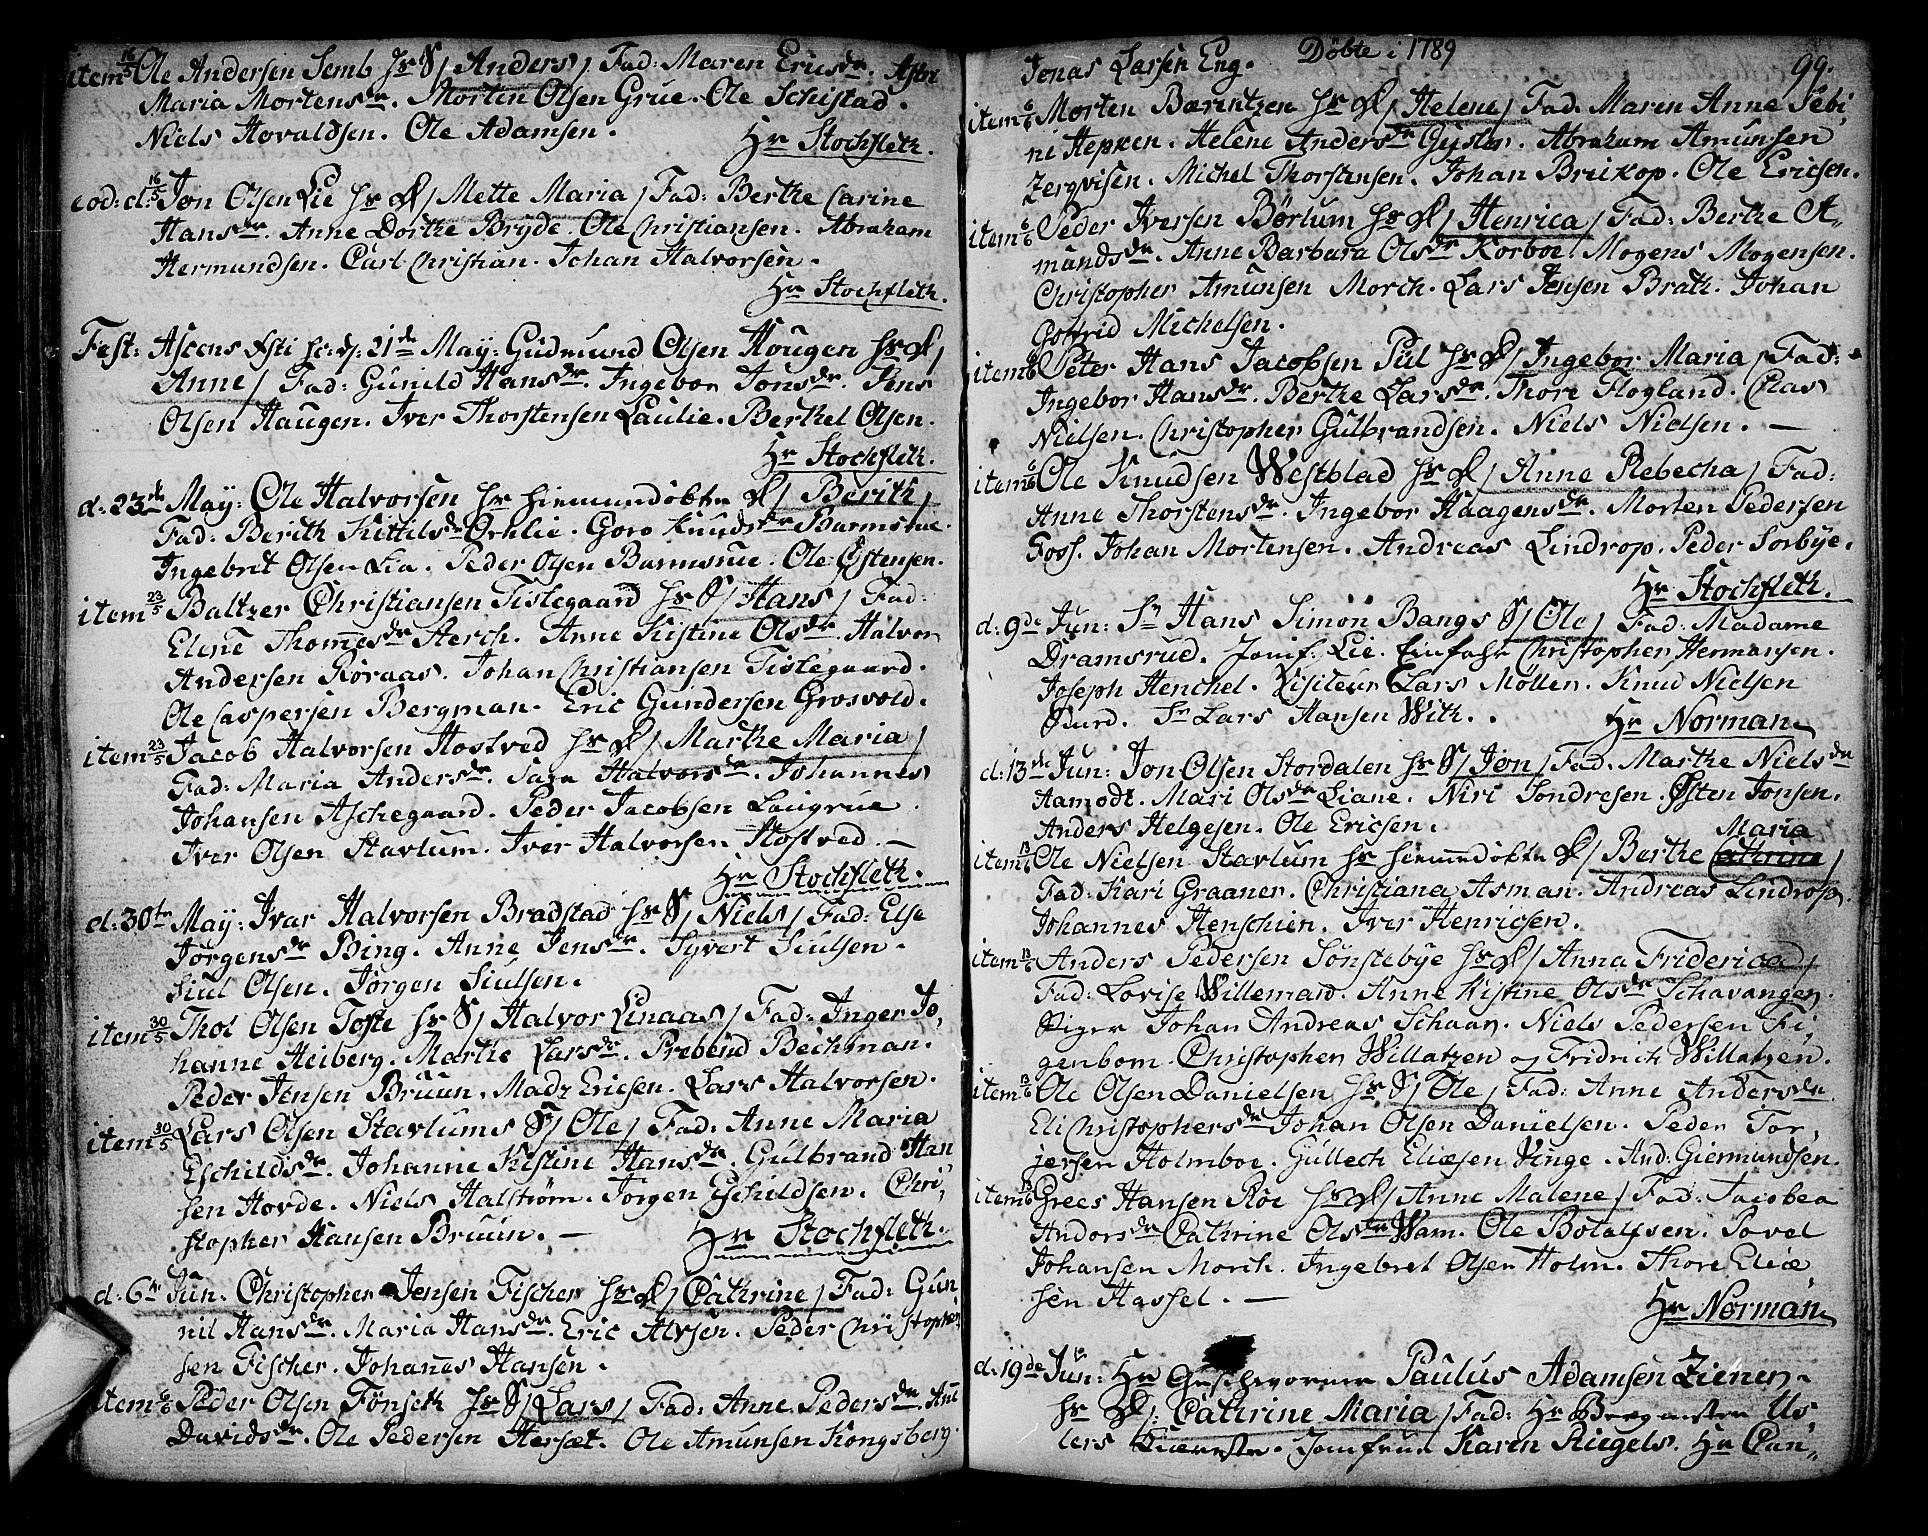 item 16/5 Ole Andersen Semb hs S/ Anders/ Fad: Maren Ericsdr. Astri
Maria Mortensdr. Morten Olsen Grue. Ole Schistad.
Niels Hovaldsen. Ole Adamsen.
Hr Stochfleth.
eod: d: 16/5 Jon Olsen Lie hs D/ Mette Maria/ Fad: Berthe Carine
Hansdr. Anne Dorthe Bryde. Ole Christiansen. Abraham
Hermundsen. Carl Christian. Johan Halvorsen.
Hr Stochfleth.
Fest: Ascens Xsti sc: d: 21de May: Gudmund Olsen Hougen hs D/
Anne/ Fad: Gunild Hansdr. Ingebor Jonsdr. Jens
Olsen Haugen. Iver Thorstensen Laulie. Berthel Olsen.
Hr Stochfleth.
d: 23de May: Ole Halvorsen hs hiemmedøbte D/ Berith/
Fad: Berith Kittilsdr Ørhlie. Goro Knudsdr Barmstue.
Ingebrit Olsen Lia. Peder Olsen Barmsrue. Ole Østensen.
item 23/5 Baltzer Christiansen Tislegaard hs S/ Hans/ Fad:
Elene Thomesdr Sterch. Anne Kistine Olsdr. Halvor
Andersen Røraas. Johan Christiansen Tislegaard.
Ole Caspersen Bergman. Eric Gundersen Grosvold.
item 23/5 Jacob Halvorsen Hostved hs D/ Marthe Maria/
Fad: Maria Andersdr. Sara Halvorsdr. Johannes
Johansen Aschegaard. Peder Jacobsen Laugrue.
Iver Olsen Stavlum. Iver Halvorsen Hostved. —
Hr Stochfleth.
d: 30te May: Ivar Halvorsen Bradstad hs S/ Niels/ Fad: Else
Jørgensdr Bing. Anne Jensdr. Syvert Siulsen.
Siul Olsen. Jørgen Siulsen.
item 30/5 Thol Olsen Tofte hs S/ Halvor Linaas/ Fad: Inger Jo,
hanne Heiberg. Marthe Larsdr. Prebend Bechman.
Peder Jensen Bruun. Madz Ericsen. Lars Halvorsen.
item 30/5 Lars Olsen Stavlums S/ Ole/ Fad: Anne Maria
Eschildsdr. Johanne Kistine Hansdr. Gulbrand Han,
sen Hovde. Niels Halstrøm. Jørgen Eschildsen. Chri,
stopher Hansen Bruun. —
Hr Stochfleth.
d: 6te Jun: Christopher Jensen Fischer hs D/ Cathrine/ Fad: Gun
nil Hansdr. Maria Hansdr. Eric Alvsen. Peder Christopher
sen Fischer. Johannes Hansen.
item 6/6 Peder Olsen Fønseth hs S/ Lars/ Fad: Anne Pedersdr. Anne
Davidsdr. Ole Pedersen Hersæt. Ole Amunsen Kongsberg.
Døbte i 1789
99.
Jonas Larsen Eng.
item 6/6 Morten Bærentzen hs D/ Helene/ Fad: Maren Anne Sebi,
ni Hepken. Helene Andersdr Gysler. Abraham Amunsen
Zergvisen. Michel Thorstensen. Johan Brickop. Ole Ericsen.
item 6/6 Peder Iversen Børlum hs D/ Henrica/ Fad: Berthe A,
mundsdr. Anne Barbara Olsdr Korboe. Mogens Mogensen.
Christopher Amunsen Morch. Lars Jensen Brath. Johan
Gotfrid Michelsen.
item 6/6 Peter Hans Jacobsen Pül hs D/ Ingebor Maria/ Fad:
Ingebor Hansdr. Berthe Larsdr. Thore Hogland. Clas
Nielsen. Christopher Gulbrandsen. Niels Nielsen. —
item 6/6 Ole Knudsen Westblad hs D/ Anne Rebecha/ Fad:
Anne Thorstensdr. Ingebor Haagensdr. Morten Pedersen
Foss. Johan Mortensen. Andreas Lindrop. Peder Sorbye.
Hr Stochfleth.
d: 9de Jun: Sr Hans Simon Bangs S/ Ole/ Fad: Madame
Dramsrud. Jomf: Lie. Einfahr Christopher Hermansen.
Joseph Henchel. Visiteur Lars Møller. Knud Nielsen
Burd. Sr Lars Hansen With.
Hr Norman.
d: 13de Jun: Jon Olsen Stordalen hs S/ Jon/ Fad: Marthe Nielsdr
Aamodt. Mari Olsdr Liane. Niri Sondresen. Østen Jonsen.
Anders Helgesen. Ole Ericsen.
Maria
item 13/6 Ole Nielsen Stavlum hs hiemmedøbte D/ Berthe Cathrine/
Fad: Kari Graaner. Christiana Asman. Andreas Lindrop.
Johannes Henschien. Iver Henricsen.
item 13/6 Anders Pedersen Sønstebye hs D/ Anna Friderica/
Fad: Lovise Willeman. Anne Kistine Olsdr Schavangen.
Stiger Johan Andreas Schaar. Niels Pedersen Fi,
genbom. Christopher Willatzen og Fridrich Willatzen.
item 13/6 Ole Olsen Danielsen hs S/ Ole/ Fad: Anne Andersdr.
Eli Christophersdr Johan Olsen Danielsen. Peder Tor,
jersen Holmboe. Gullech Eliæsen Vinge. And: Giermundsen.
item 13/6 Grees Hansen Roe hs D/ Anne Malene/ Fad: Jacobea
Andorsdr Cathrine Olsdr Wam. Ole Botolfsen. Povel
Johansen Morch. Ingebret Olsen Holm. Thore Eliæ
sen Hassel. —
Hr Norman.
d: 19de Jun: Hr Geschworner Paulus Adamsen Ziener
hs D/: Cathrine Maria/ Fad: Hr Bergmester Us,
lers Kiæreste. Jomfrue Karen Riegels. Hr Can,